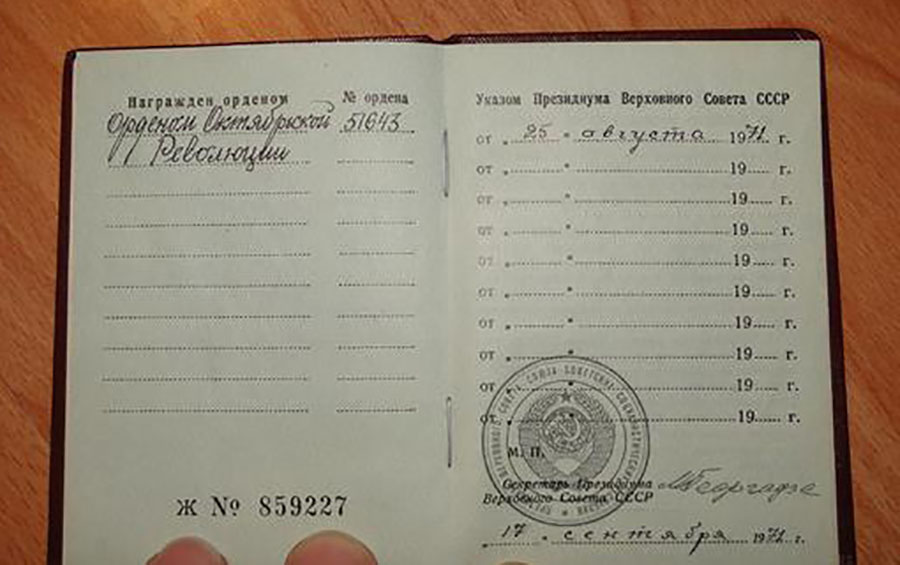 Награжден орденом № ордена
Орденом Октябрьской 51643
Революции
Ж № 859227
Указом Президиума Верховного Совета СССР
от „ 25 " августа 1971 г.
от „ " 19 г.
от „ " 19 г.
от „ " 19 г.
от „ " 19 г.
от „ " 19 г.
от „ " 19 г.
от „ " 19 г.
от „ " 19 г.
от „ " 19 г.
М. П.
Секретарь Президиума
Верховного Совета СССР
МГеоргадзе
„ 17 " сентября 1971 г.
ВЕРХОВНОГО СОВЕТА СОЮЗА СОВЕТСКИХ СОЦИАЛИСТИЧЕСКИХ